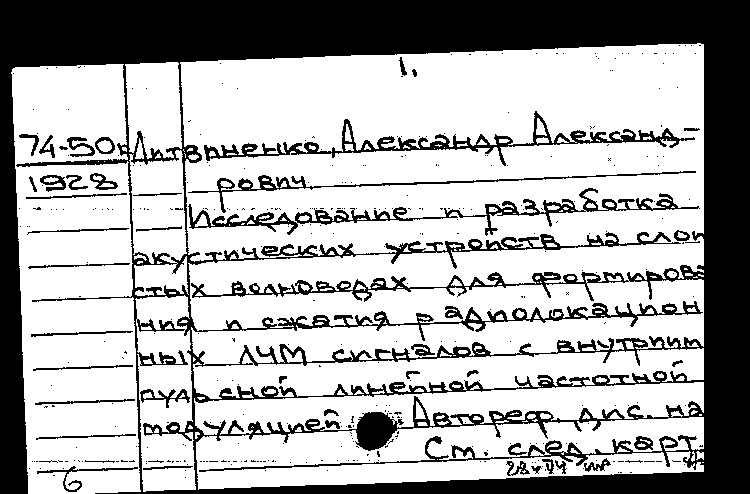 1.
74-50к Литвиненко, Александр Александ-
1928 рович.
Исследование и разработка
акустических устройств на слои
стых волноводах для формирова
ния и сжатия радиолокацион
ных ЛЧМ сигналов с внутриим
пульсной линейной частотной
модуляцией. Автореф. дис. на
См. след. карт.
6